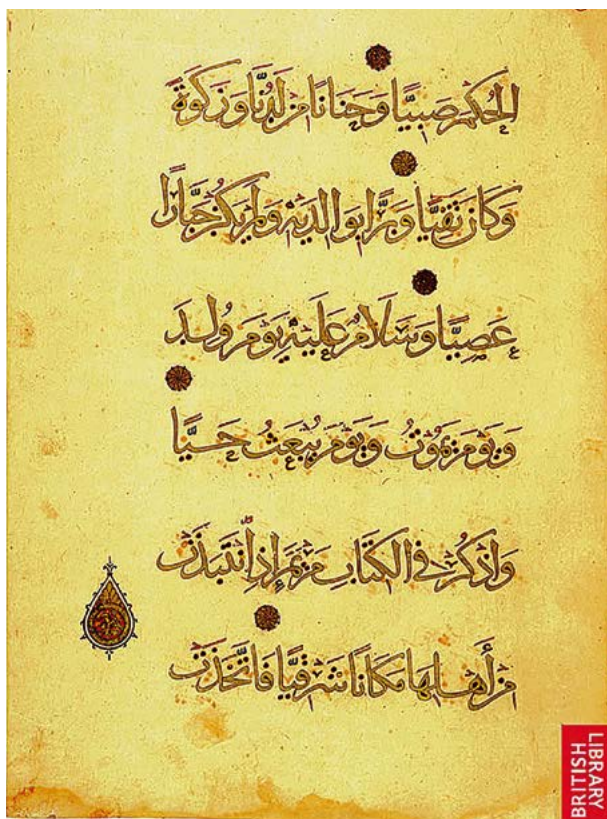 الحُكمَ صَبِيًّا وَحَنَانًا مِن لَدُنَّا وَزَكَوٰةً
وَكَانَ تَقِيًّا وَبَرًّا بِوَالِدَيْهِ وَلَمْ يَكُن جَبَّارًا
عَصِيًّا وَسَلَامٌ عَلَيْهِ يَوْمَ وُلِدَ
وَيَوْمَ يَمُوتُ وَيَوْمَ يُبْعَثُ حَيًّا
وَاذْكُرْ فِي الكِتَابِ مَرْيَمَ إِذِ انْتَبَذَتْ
مِنْ أَهْلِهَا مَكَانًا شَرْقِيًّا فَاتَّخَذَتْ
BRITISH LIBRARY